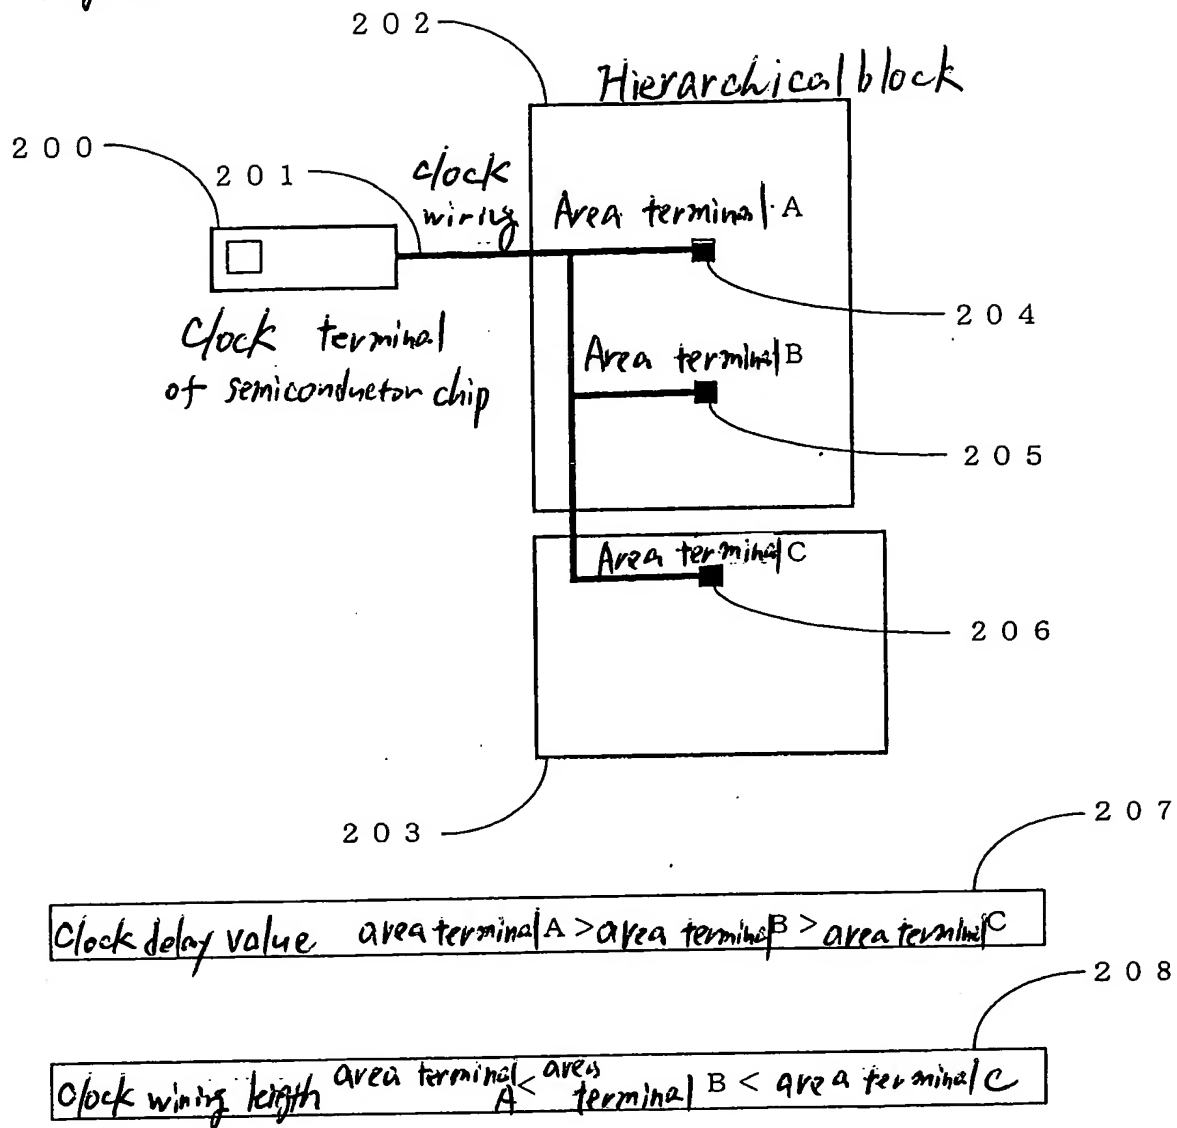 202
Hierarchical block
200
201
clock
wiring
Area terminal A
204
Clock terminal
of semiconductor chip
Area terminal B
205
Area terminal C
206
203
207
Clock delay value area terminal A > area terminal B > area terminal C
208
Clock wiring length area terminal A < area terminal B < area terminal C